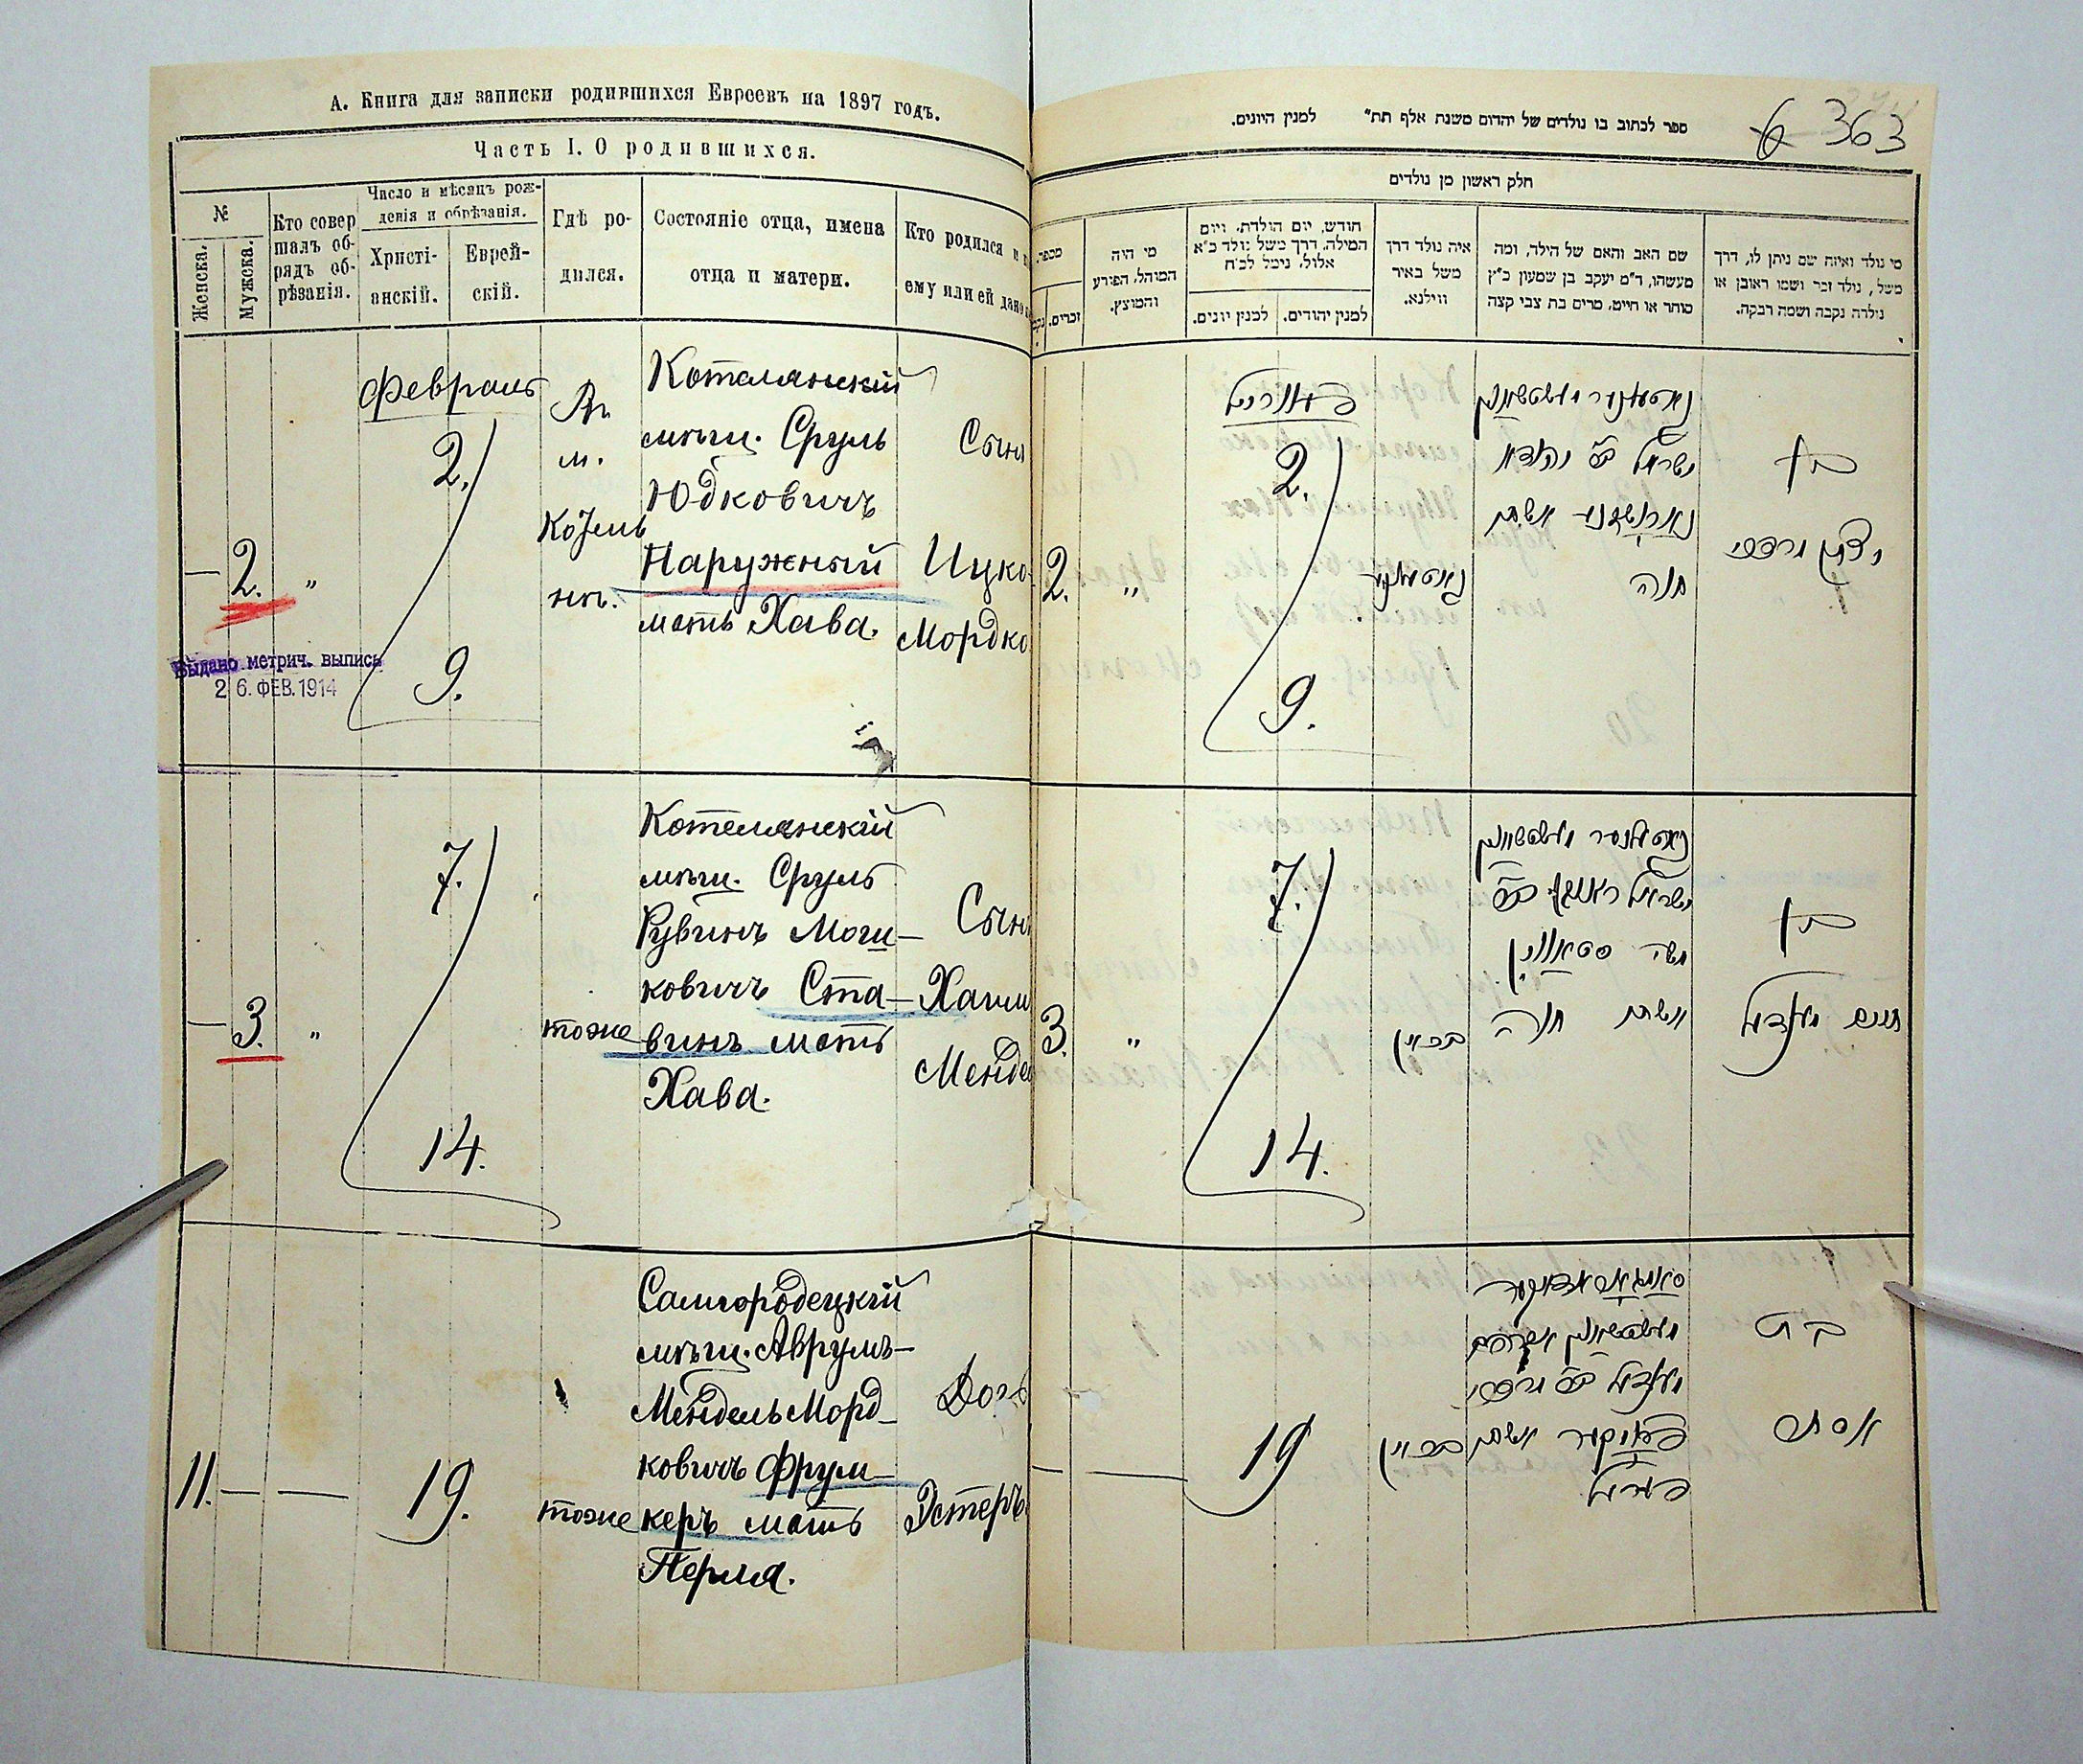 А. Книга для записки родившихся Евреевъ на 1897 годъ.
Часть I. О родившихся.
№
Женска.
Мужска.
Кто совер
шалъ об-
рядъ об-
рѣзанія.
Число и мѣсяцъ рож-
денія и обрѣзанія.
Христі-
анскій.
Еврей-
скій.
Гдѣ ро-
дился.
Состояніе отца, имена
отца и матери.
Кто родился и
ему или ей дано
2.
"
Февраль
2.
9.
Въ
м.
нѣ.
Котелянскій
мѣщ. Сруль
Юдковичъ
Наружный
мать Хава.
Сынъ
Ицко-
Мордко
Выдано метрич. выпись
26. ФЕВ. 1914
3.
"
7.
14.
тоже
Котелянскій
мѣщ. Сруль
Рувинъ Мош-
ковичъ Ста-
винъ мать
Хава.
Сынъ
Хаим
Мендел
11.
19.
тоже
Самгородецкій
мѣщ. Аврумъ-
Мендель Морд-
ковичъ Фрум-
керъ мать
Перля.
Дочь
Эстеръ
363
ספר לכתוב בו נולדים של יהדום משנת אלף תת" למנין היונים.
חלק ראשון מן נולדים
מי נולד ואיזה שם ניתן לו, דרך
משל, נולד זכר ושמו ראובן או
נילדה נקבה ושמה רבקה.
שם האב והאם של הילד, ומה
מעשהו, ד"מ יעקב בן שמעון כ"ץ
סוחר או חייט, מרים בת צבי קצה
איה נולד דרך
משל באיר
ווילנא.
חודש, יום הולדת, ויום
המילה, דרך משל נולד כ"א
אלול, נימל לכ"ח
למנין יהודים.
למנין יונים.
מי היה
המוהל, הפורע
והמוצץ.
מספר.
זכרים.
בן
ישראל בן יהודא
חוה
2.
9.
"
2.
בן
חיים מענדיל
משה סטאווין
אשתו חוה
7.
14.
"
3.
בת
אסתר
19